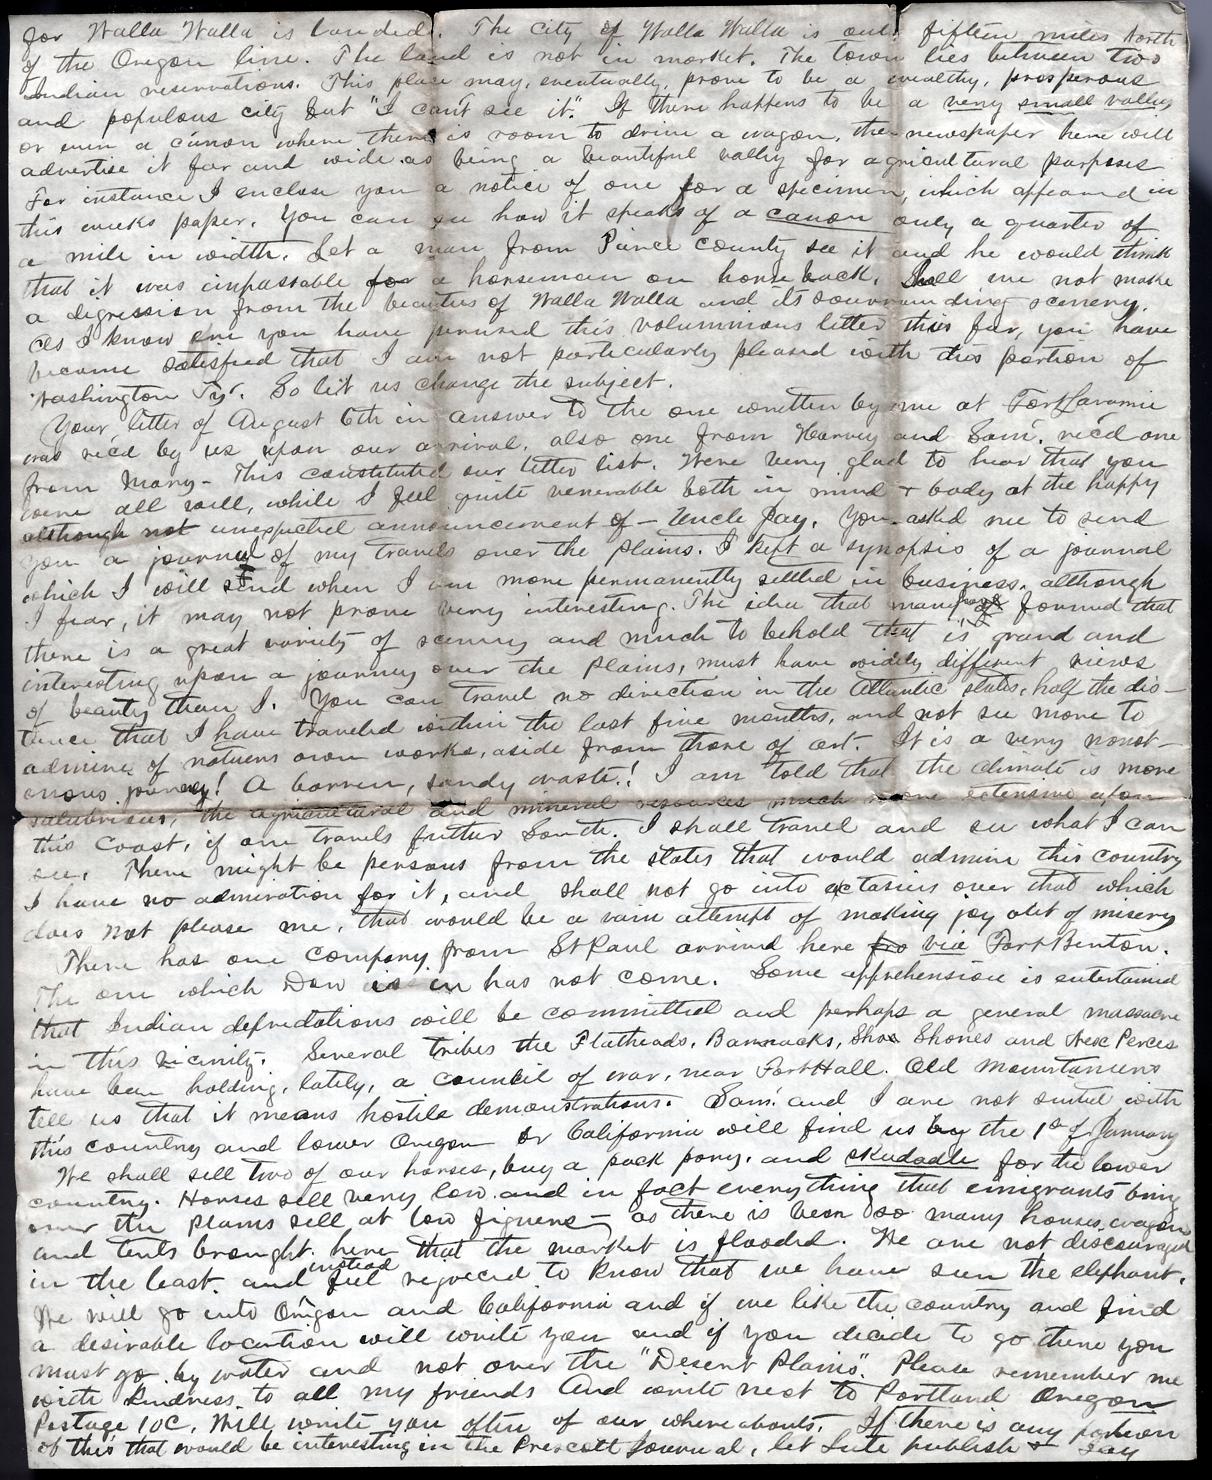 for Walla Walla is landed. The City of Walla Walla is out fifteen miles North
of the Oregon line. The land is not in market. The town lies between two
Indian reservations. This place may, eventually, prove to be a wealthy, prosperous
and populous city but "I can't see it". If there happens to be a very small valley
or even a cañon where there is room to drive a wagon, the newspaper here will
advertise it far and wide as being a beautiful valley for agricultural purposes
For instance I enclose you a notice of one for a specimen, which appeared in
this weeks paper. You can see how it speaks of a canon only a quarter of
a mile in width. Let a man from Pierce County see it and he would think
that it was impassable for a horseman on horse back. Shall we not make
a digression from the beauties of Walla Walla and its sourrounding scenery.
As I know ere you have perused this voluminous letter thus far, you have
become satisfied that I am not particularly pleased with this portion of
Washington Ty. So let us change the subject.
Your letter of August 6th in answer to the one written by me at Fort Laramie
was rec'd by us upon our arrival. also one from Harvey and Sam'. rec'd one
from Mary - This constituted our letter list. Were very glad to hear that you
were all well, while I feel quite venerable both in mind + body at the happy
although not unexpected announcement of - Uncle Jay. You asked me to send
you a journal of my travels over the plains. I kept a synopsis of a journal
which I will send when I am more permanently settled in business. although
I fear, it may not prove very interesting. The idea that many have formed that
there is a great variety of scenery and much to behold that is grand and
interesting upon a journey over the plains, must have widely different views
of beauty than I. You can travel no direction in the Atlantic states, half the dis-
tance that I have traveled within the last five months, and not see more to
admire, of natures own works, aside from those of art. It is a very monot-
onous journey! A barren, sandy waste! I am told that the climate is more
salubrious, the agricultural and mineral resources much more extensive upon
this Coast, if one travels further South. I shall travel and see what I can
see. There might be persons from the states that would admire this country
I have no admiration for it, and shall not go into extasies over that which
does not please me, that would be a vain attempt of making joy out of misery
There has one company from St Paul arrived here fro via Fort Benton.
The one which Dow is in has not come. Some apprehension is entertained
that Indian depredations will be committed and perhaps a general massacre
in this vicinity. Several tribes the Flatheads, Bannacks, Sho Shones and Nex Perces
have been holding, lately, a council of war, near Fort Hall. Old Mountaineers
tell us that it means hostile demonstrations. Sam' and I are not suited with
this country and lower Oregon or California will find us by the 1st of January
We shall sell two of our horses, buy a pack pony, and skedadle for the lower
country. Horses sell very low and in fact everything that emigrants bring
over the plains sell at low figures - as there is been so many horses, wagons
and tents brought here that the market is flooded. We are not discouraged
in the least. and instead feel rejoiced to know that we have seen the elephant.
We will go into Oregon and California and if we like the country and find
a desirable location will write you and if you decide to go there you
must go by water and not over the "Desert Plains". Please remember me
with kindness to all my friends And write next to Portland Oregon
Postage 10C. Will write you often of our whereabouts. If there is any portion
of this that would be interesting in the Prescott Journal, let Lute publish it Jay